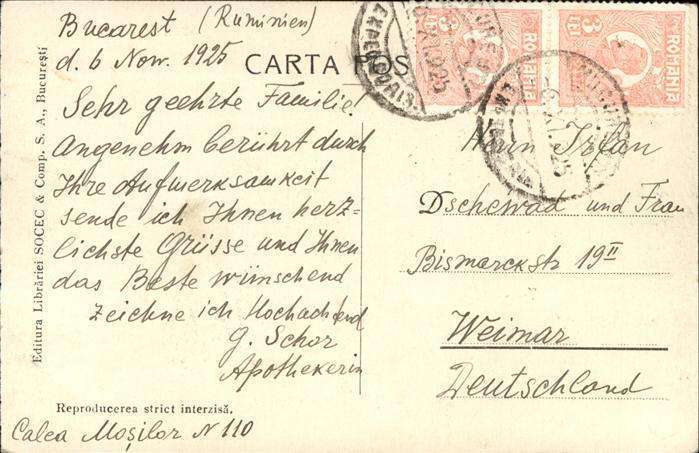 Bucarest (Ruminien)
d. 6 Nov. 1925
CARTA POS
Sehr geehrte Familie!
Angenehm berührt durch
Ihre Aufmerksamkeit
sende ich Ihnen herz=
lichste Grüsse und Ihnen
das Beste wünschend
zeichne ich Hochachtend
G. Schor
Apothekerin
Editura Librăriei SOCEC & Comp. S. A., București
Reproducerea strict interzisă.
Calea Moșilor N 110
3 LEI
ROMANIA
3 LEI
ROMANIA
Herrn Irfan
Dschewad und Frau
Bismarckstr 19II
Weimar
Deutschland